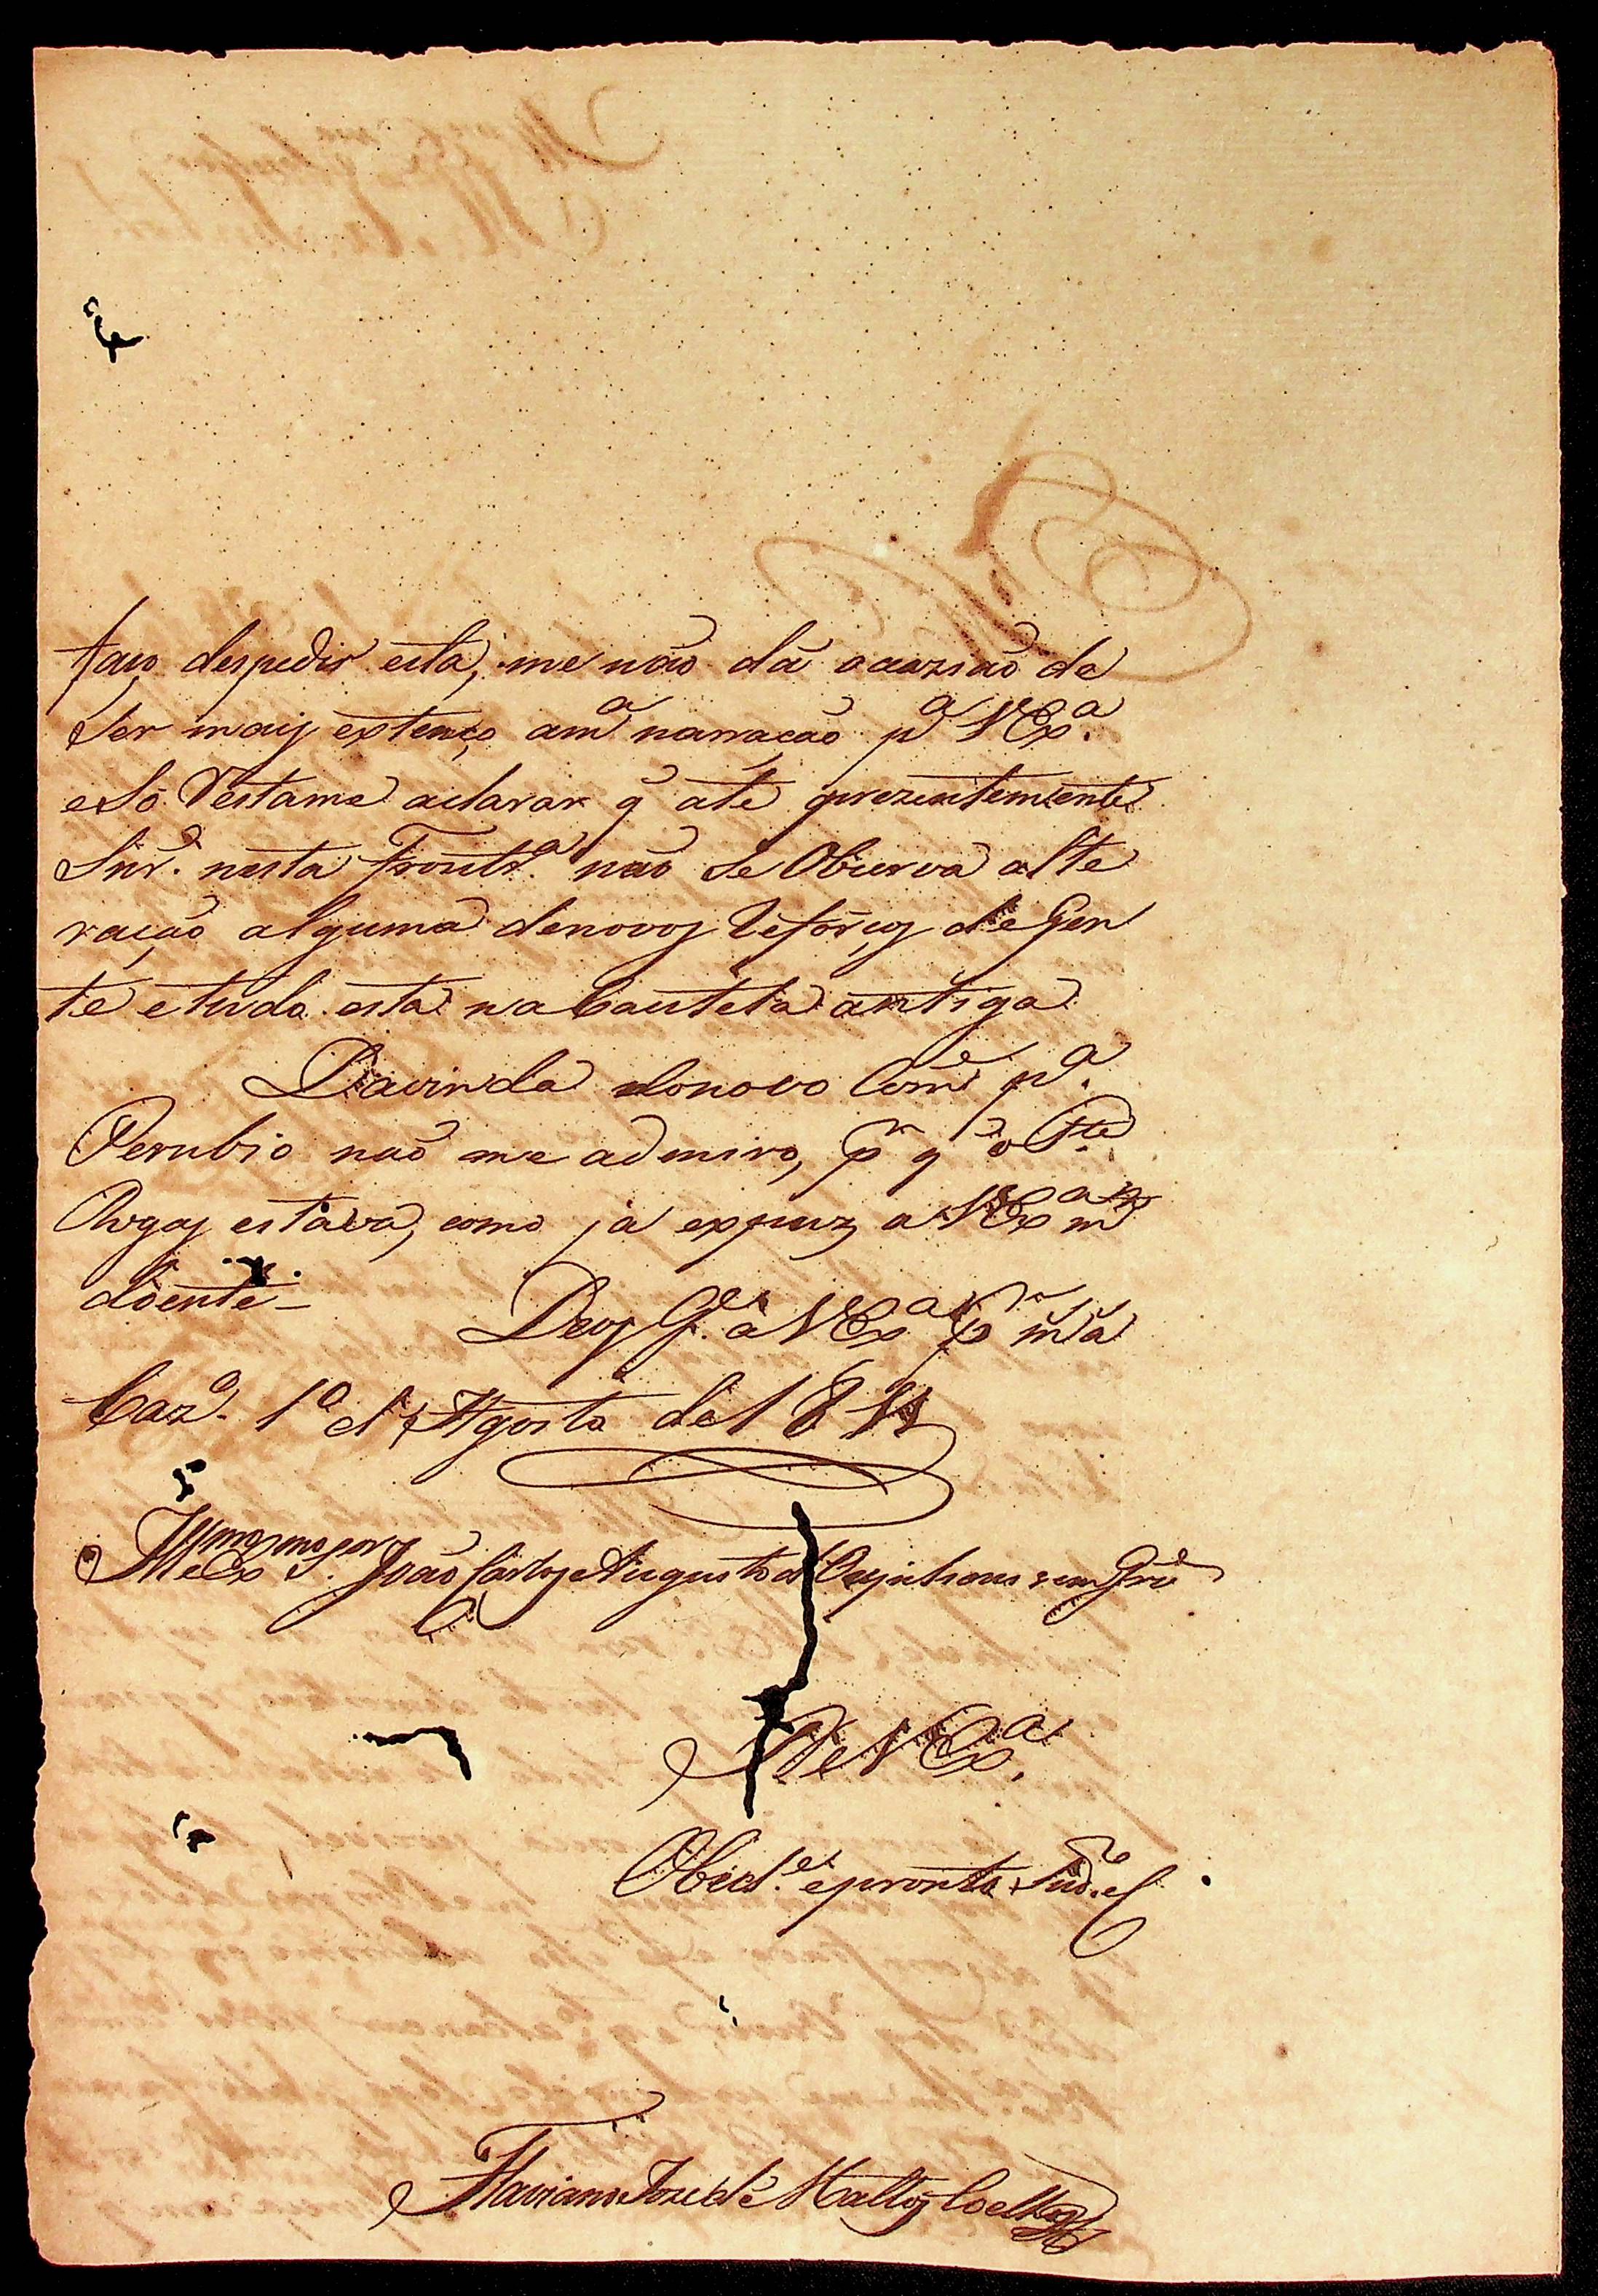 faço despedir esta, me não dá ocazião de
ser mais extenço am.ª narração p.ª V Ex.ª
e Só Restame aclarar q̃ até prezentemente
Snr.ᵉ nesta Front.ª não se Observa alte
ração alguma denovos Refórços de Gen
te e tudo esta na Cautela antiga
Davinda donovo Com.ᵉ p.ª
Perubio não me admiro, p.ʳ q̃ o Ten.ᵗᵉ
estava, como já expuz a V Ex.ª m.ᵗᵒ
doente —
Deos G.ᵉ a V Ex.ª p.ʳ m.ª
Caz.ª 1º d'Agosto de 1811
Ill.ᵐᵒ e Ex.ᵐᵒ S.ᵒʳ João Carlos Augusto d'Oeynhausen Grē
De V Ex.ª
Obed.ᵉ e pronto Sud.ᵒ
Flaviano Jozé de Mattos Coelho